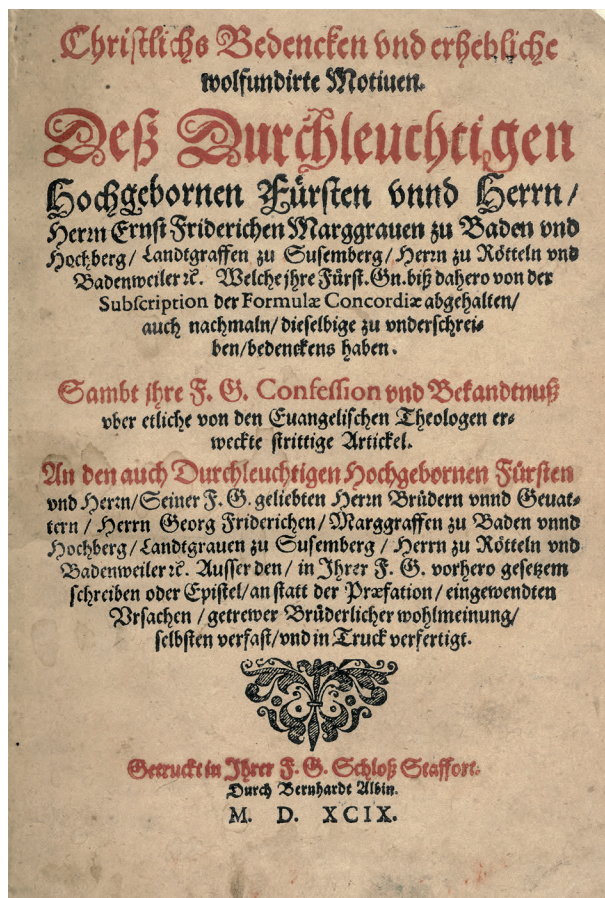 Christlichs Bedencken vnd erhebliche
wolfundirte Motiuen.
Deß Durchleuchtigen
Hochgebornen Fürsten vnnd Herrn/
Herrn Ernst Friderichen Marggrauen zu Baden vnd
Hochberg/ Landtgraffen zu Susemberg/ Herrn zu Rötteln vnd
Badenweiler ꝛc. Welche jhre Fürst. Gn. biß dahero von der
Subscription der Formulæ Concordiæ abgehalten/
auch nachmaln/ dieselbige zu vnderschrei⸗
ben/ bedenckens haben.
Sambt jhre F. G. Confession vnd Bekandtnuß
vber etliche von den Euangelischen Theologen er⸗
weckte strittige Artickel.
An den auch Durchleuchtigen Hochgebornen Fürsten
vnd Herrn/ Seiner F. G. geliebten Herrn Brüdern vnnd Geuat⸗
tern / Herrn Georg Friderichen/ Marggraffen zu Baden vnnd
Hochberg/ Landtgrauen zu Susemberg / Herrn zu Rötteln vnd
Badenweiler ꝛc. Ausser den / in Jhrer F. G. vorhero gesetzem
schreiben oder Epistel/ an statt der Præfation/ eingewendten
Vrsachen / getrewer Brüderlicher wohlmeinung/
selbsten verfast/ vnd in Truck verfertigt.
Getruckt in Jhrer F. G. Schloß Staffort.
Durch Bernhardt Albin.
M. D. XCIX.